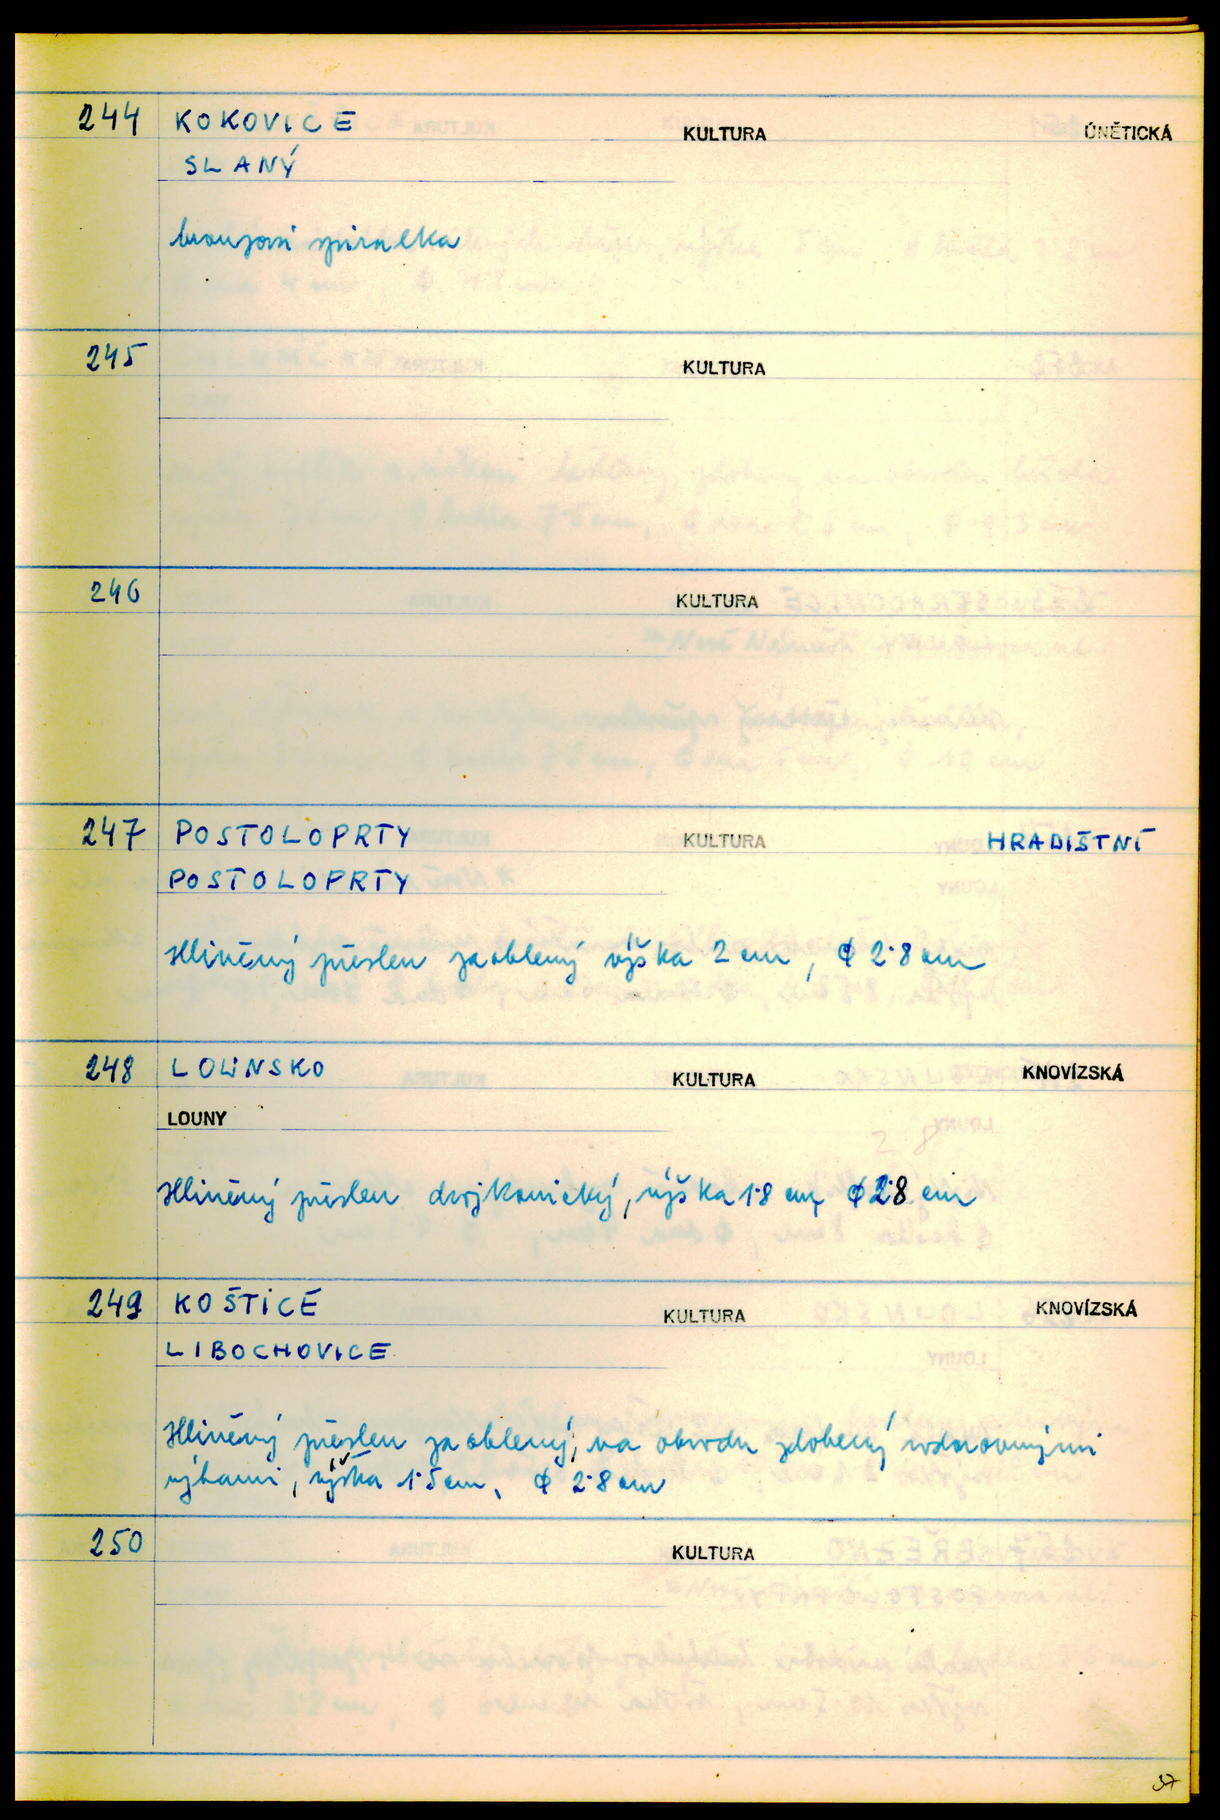 244 KOKOVICE KULTURA ÚNĚTICKÁ
SLANÝ
bronzová spirálka
245 KULTURA
246 KULTURA
247 POSTOLOPRTY KULTURA HRADIŠTNÍ
POSTOLOPRTY
Hliněný přeslen zaoblený výška 2 cm, ϕ 2·8 cm
248 LOUNSKO KULTURA KNOVÍZSKÁ
LOUNY
Hliněný přeslen dvojkonický, výška 1·8 cm, ϕ 2·8 cm
249 KOŠTICE KULTURA KNOVÍZSKÁ
LIBOCHOVICE
Hliněný přeslen zaoblený, na obvodu zdobený vodorovnými
rýhami, výška 1·5 cm, ϕ 2·8 cm
250 KULTURA
37